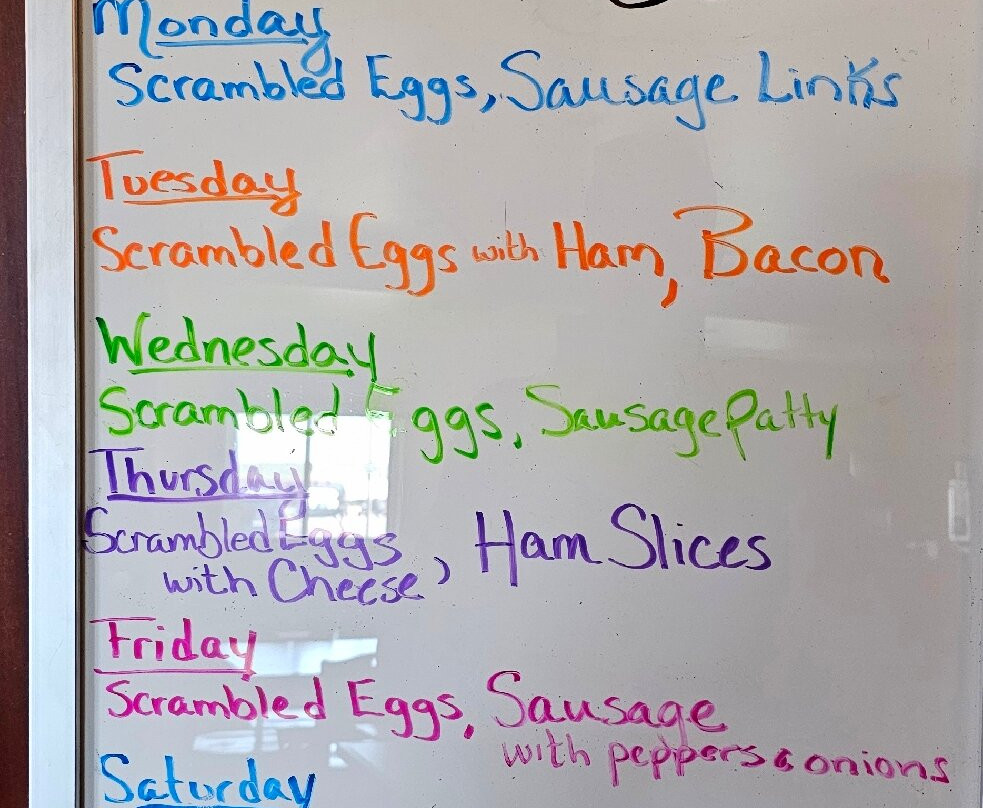 Monday
Scrambled Eggs, Sausage Links
Tuesday
Scrambled Eggs with Ham, Bacon
Wednesday
Scrambled Eggs, Sausage Patty
Thursday
Scrambled Eggs
with Cheese, Ham Slices
Friday
Scrambled Eggs, Sausage
with peppers & onions
Saturday